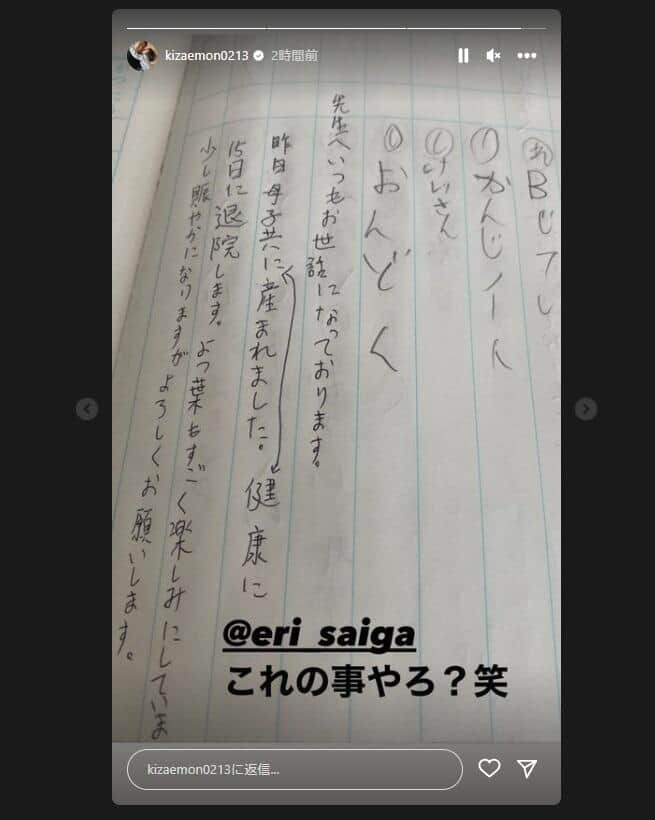 kizaemon0213 2時間前
かんじノート
けいさん
おんどく
先生へいつもお世話になっております。
昨日母子共に産まれました。健康に
15日に退院します。よつ葉もすごく楽しみにしていま
少し賑やかになりますがよろしくお願いします。
@eri_saiga
これの事やろ？笑
kizaemon0213に返信...